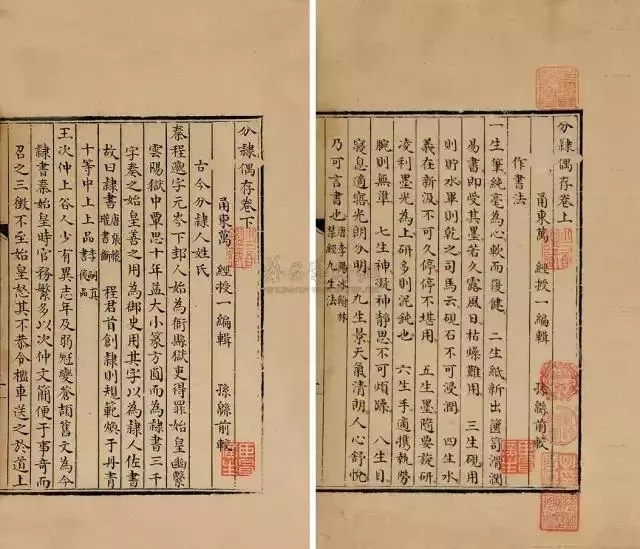 分隸偶存卷上
甬東萬 經授一編輯 孫緜前較
作書法
一生筆純毫為心軟而復健 二生紙新出篋笥潤滑
易書即受其墨若久露風日枯燥難用 三生硯用
則貯水畢則乾之司馬云硯石不可浸潤 四生水
義在新汲不可久停停不堪用 五生墨隨要旋研
凌利墨光為上研多則泥鈍也 六生手適攜執勞
腕則無準 七生神凝神靜思不可煩躁 八生目
寢息適寤光朗分明 九生景天氣清朗人心舒悅
乃可言書也 唐李陽冰翰林禁經九生法
分隸偶存卷下
甬東萬 經授一編輯 孫緜前較
古今分隸人姓氏
秦程邈字元岑下邽人始為衙縣獄吏得罪始皇幽繫
雲陽獄中覃思十年益大小篆方圓而為隸書三千
字奏之始皇善之用為御史用其字以為隸人佐書
故曰隸書 唐張懷瓘書斷 程君首創隸則規範煥于丹青
十等中上上品 李嗣真書後品
王次仲上谷人少有異志年及弱冠變蒼頡舊文為今
隸書秦始皇時官務繁多以次仲文簡便于事奇而
召之三徵不至始皇怒其不恭令檻車送之於道上